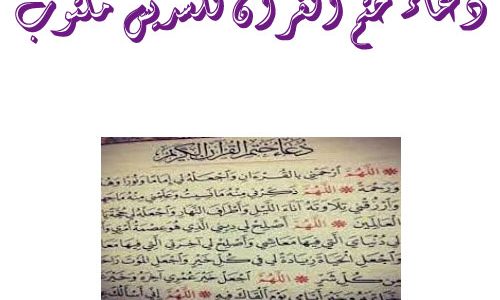 دعاء ختم القرآن للسديس مكتوب
دُعَاءُ خَتْمِ الْقُرْآنِ الْكَرِيْمِ
* اللَّهُمَّ ارْحَمْنِي بِالْقُرْءَانِ وَاجْعَلْهُ لِي إِمَامًا وَنُورًا وَهُدً
وَرَحْمَةً * اللَّهُمَّ ذَكِّرْنِي مِنْهُ مَانَسِيتُ وَعَلِّمْنِي مِنْهُ مَاجَهِلْ
وَارْزُقْنِي تِلَاوَتَهُ آنَاءَ اللَّيْلِ وَأَطْرَافَ النَّهَارِ وَاجْعَلْهُ لِي حُجَّةً يَا
الْعَالَمِينَ * اللَّهُمَّ أَصْلِحْ لِي دِينِي الَّذِي هُوَ عِصْمَةُ أَمْرِي وَ
لِي دُنْيَايَ الَّتِي فِيهَا مَعَاشِي وَأَصْلِحْ لِي آخِرَتِي الَّتِي فِيهَا مَعَا
وَاجْعَلِ الْحَيَاةَ زِيَادَةً لِي فِي كُلِّ خَيْرٍ وَاجْعَلِ الْمَوْتَ رَاحَ
مِنْ كُلِّ شَرٍّ * اللَّهُمَّ اجْعَلْ خَيْرَ عُمْرِي آخِرَهُ وَخَيْرَ
أَيَّامِي يَوْمَ أَلْقَاكَ فِيهِ * اللَّهُمَّ إِنِّي أَسْأَلُكَ